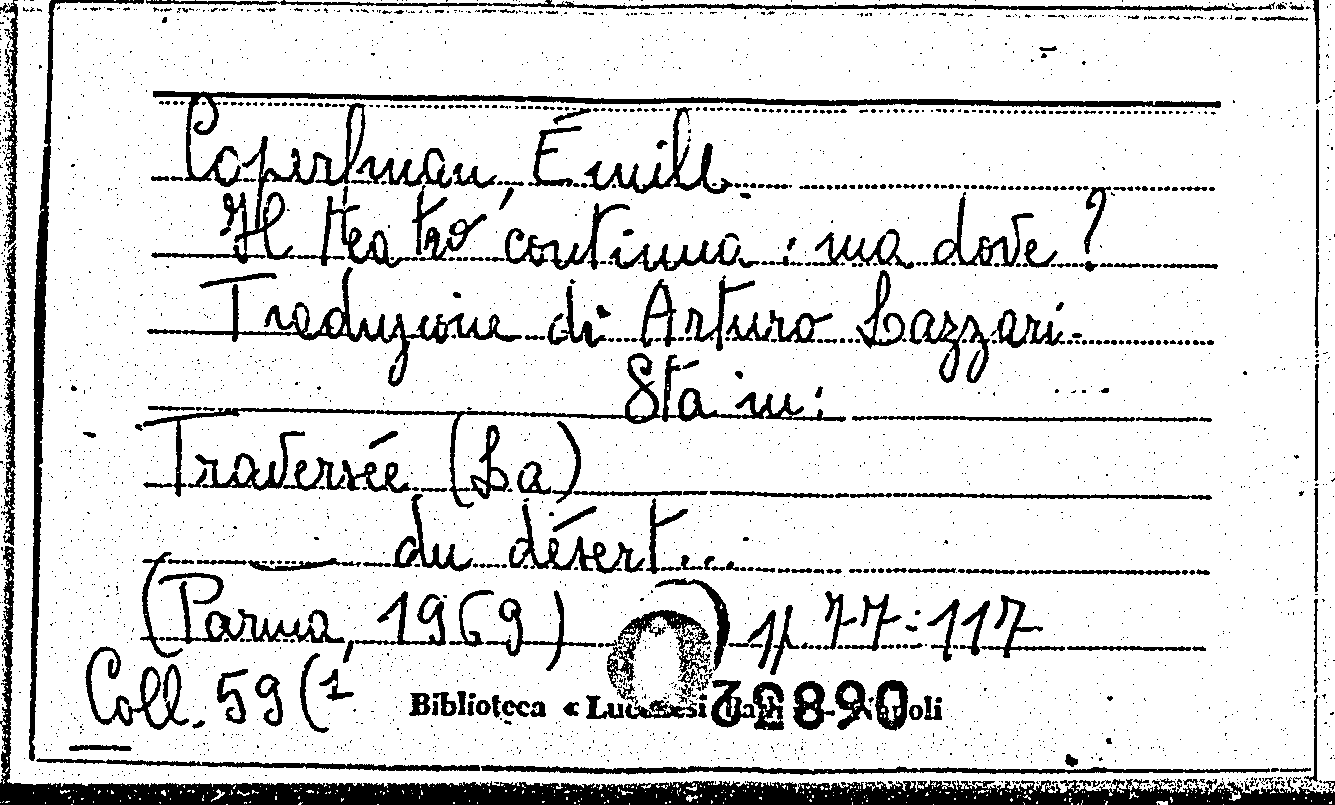 Coperlman, Émile.
Il teatro continua: ma dove?
Traduzione di Arturo Lazzari.
Sta in:
Traversée (La)
du désert...
(Parma, 1969) pp 77-117
Coll. 59 (1
Biblioteca « Lucchesi Palli » - Napoli
32890